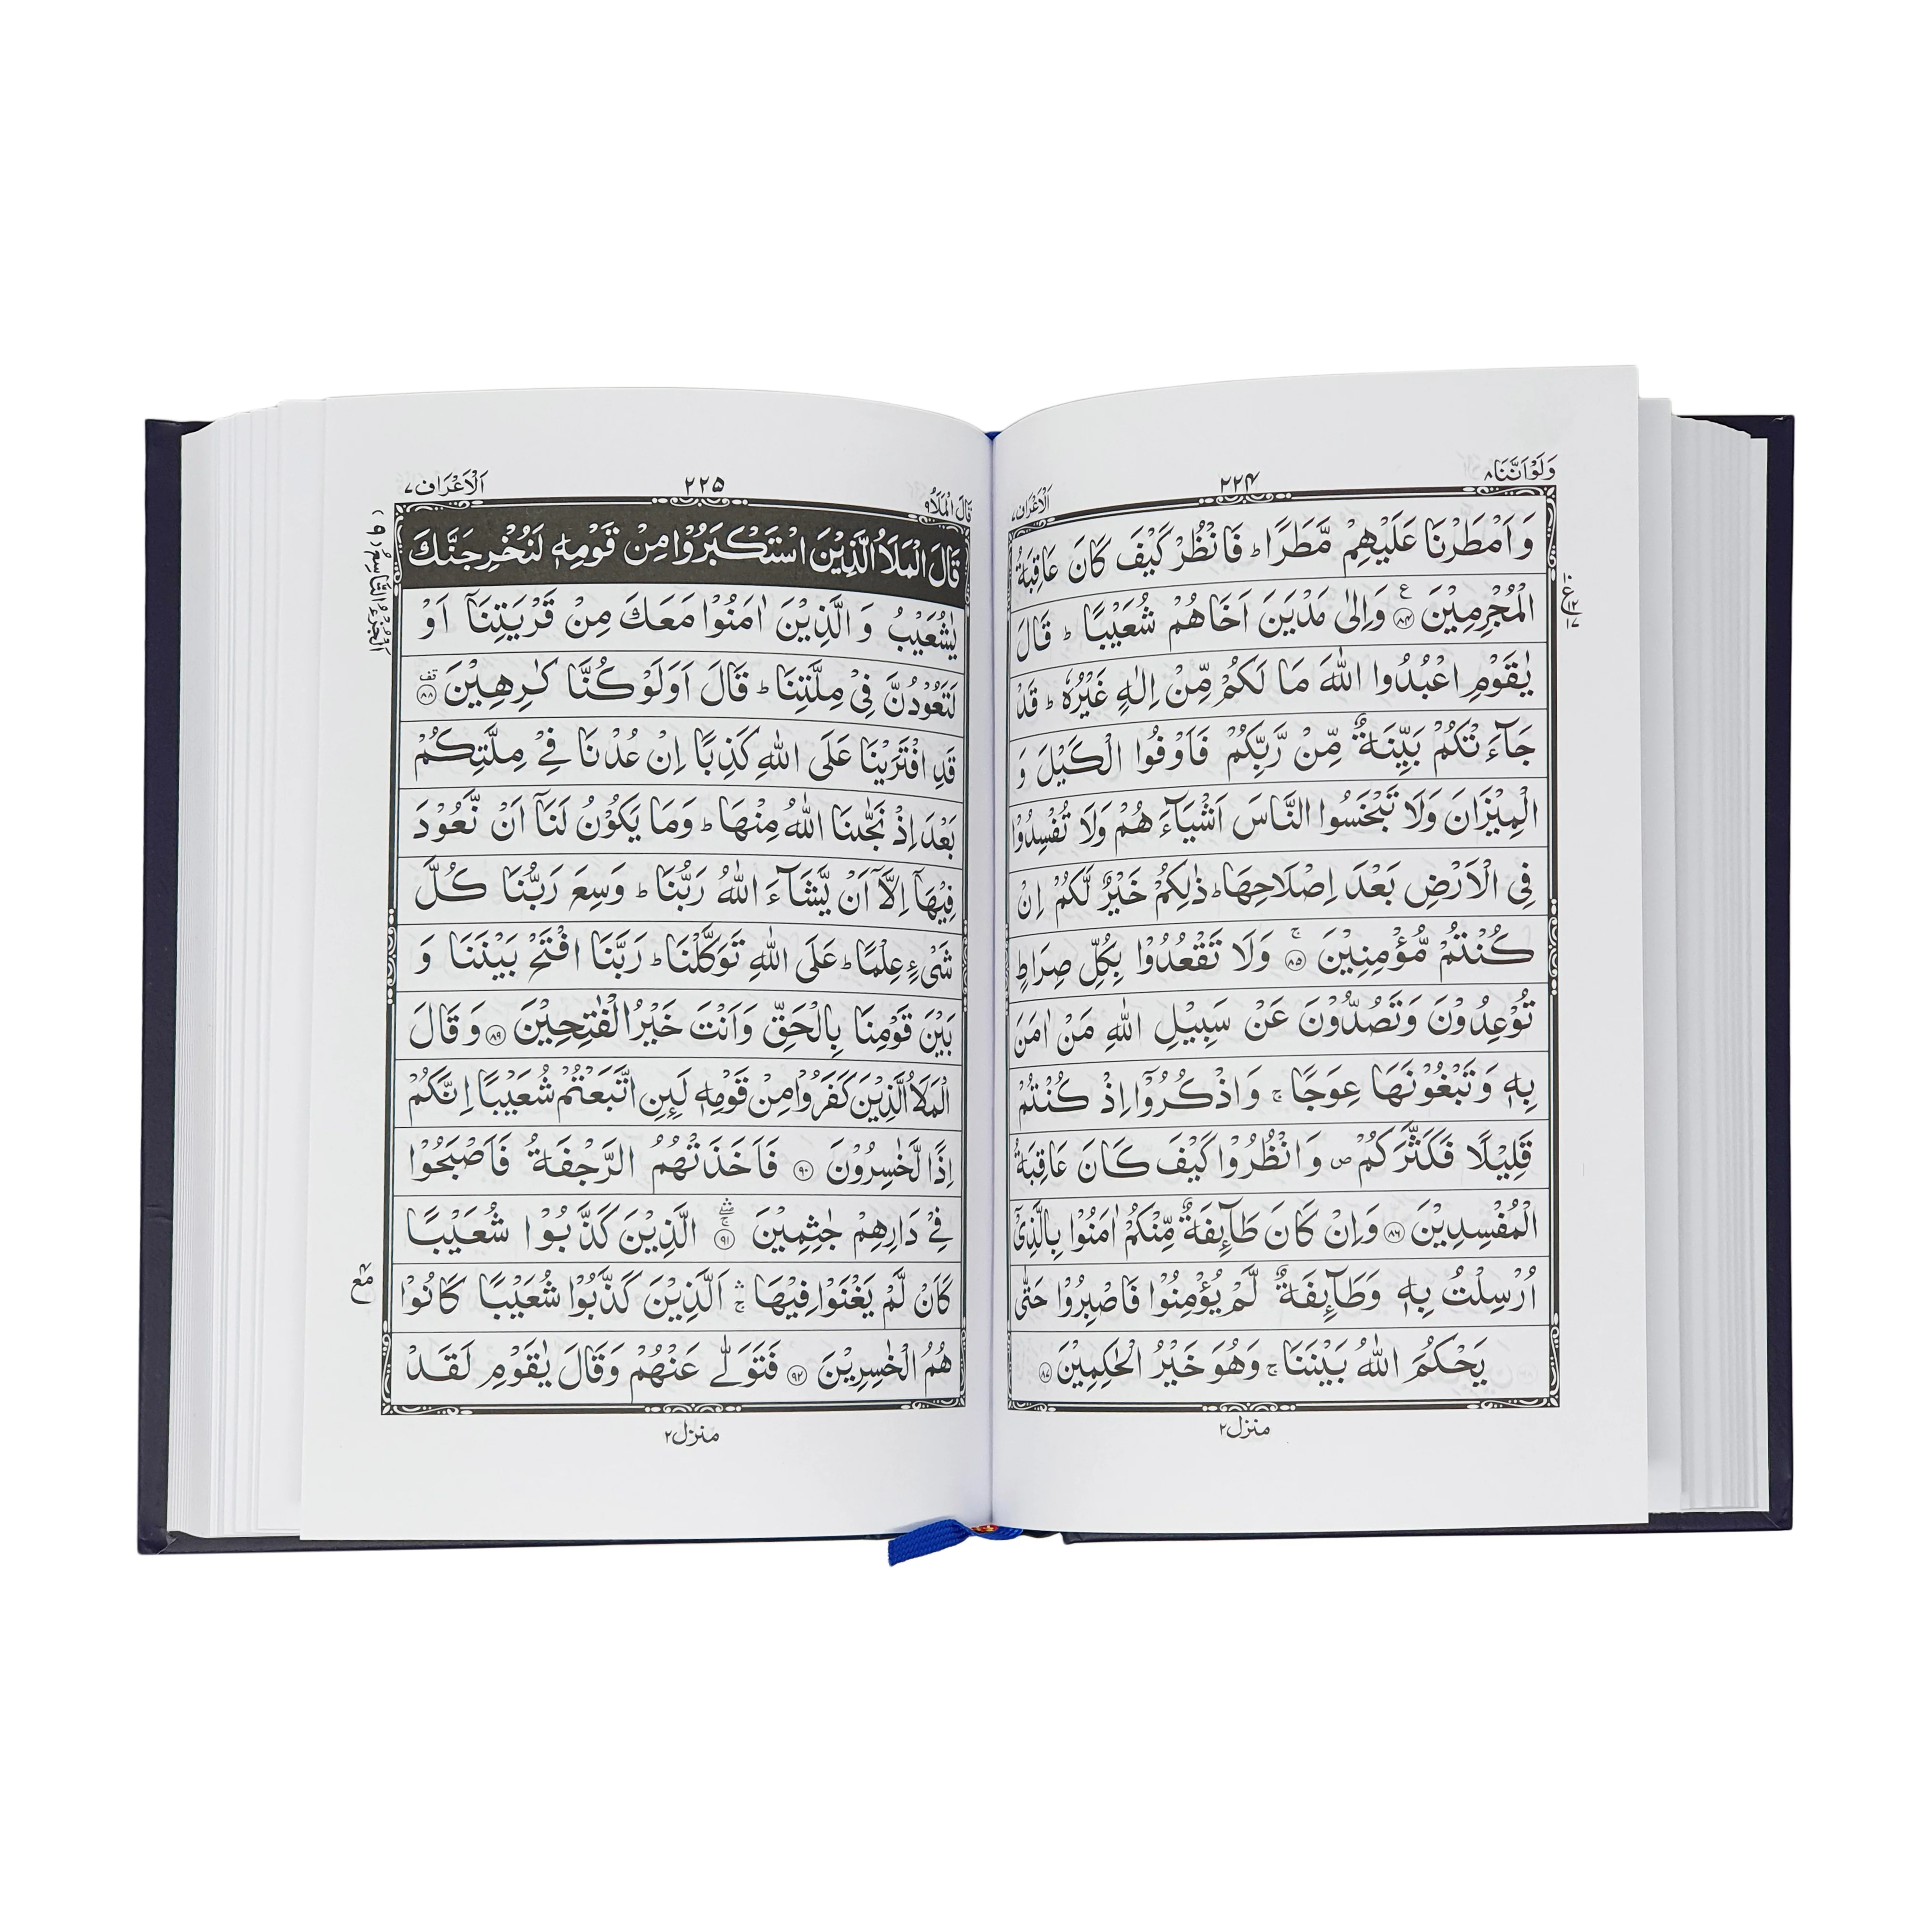 وَلَوْ اَنَّنَا ٨
٢٢٤
اَلْاَعْرَاف ٧
وَ اَمْطَرْنَا عَلَيْهِمْ مَّطَرًا ؕ فَانْظُرْ كَيْفَ كَانَ عَاقِبَةُ
الْمُجْرِمِيْنَ ﴿۸۴﴾ ع وَاِلٰى مَدْيَنَ اَخَاهُمْ شُعَيْبًا ؕ قَالَ
يٰقَوْمِ اعْبُدُوا اللّٰهَ مَا لَكُمْ مِّنْ اِلٰهٍ غَيْرُهٗ ؕ قَدْ
جَآءَتْكُمْ بَيِّنَةٌ مِّنْ رَّبِّكُمْ فَاَوْفُوا الْكَيْلَ وَ
الْمِيْزَانَ وَلَا تَبْخَسُوا النَّاسَ اَشْيَآءَهُمْ وَلَا تُفْسِدُوْا
فِى الْاَرْضِ بَعْدَ اِصْلَاحِهَا ؕ ذٰلِكُمْ خَيْرٌ لَّكُمْ اِنْ
كُنْتُمْ مُّؤْمِنِيْنَ ۚ﴿۸۵﴾ وَلَا تَقْعُدُوْا بِكُلِّ صِرَاطٍ
تُوْعِدُوْنَ وَتَصُدُّوْنَ عَنْ سَبِيْلِ اللّٰهِ مَنْ اٰمَنَ
بِهٖ وَتَبْغُوْنَهَا عِوَجًا ۚ وَاذْكُرُوْۤا اِذْ كُنْتُمْ
قَلِيْلًا فَكَثَّرَكُمْ ص وَانْظُرُوْا كَيْفَ كَانَ عَاقِبَةُ
الْمُفْسِدِيْنَ ﴿۸۶﴾ وَاِنْ كَانَ طَآئِفَةٌ مِّنْكُمْ اٰمَنُوْا بِالَّذِىْۤ
اُرْسِلْتُ بِهٖ وَطَآئِفَةٌ لَّمْ يُؤْمِنُوْا فَاصْبِرُوْا حَتّٰى
يَحْكُمَ اللّٰهُ بَيْنَنَا ۚ وَهُوَ خَيْرُ الْحٰكِمِيْنَ ﴿۸۷﴾
منزل ٢
قَالَ الْمَلَاُ ٩
٢٢٥
اَلْاَعْرَاف ٧
اَلْجُزْءُ التَّاسِعُ (٩)
قَالَ الْمَلَاُ الَّذِيْنَ اسْتَكْبَرُوْا مِنْ قَوْمِهٖ لَنُخْرِجَنَّكَ
يٰشُعَيْبُ وَ الَّذِيْنَ اٰمَنُوْا مَعَكَ مِنْ قَرْيَتِنَاۤ اَوْ
لَتَعُوْدُنَّ فِىْ مِلَّتِنَا ؕ قَالَ اَوَلَوْ كُنَّا كٰرِهِيْنَ قف ﴿۸۸﴾
قَدِ افْتَرَيْنَا عَلَى اللّٰهِ كَذِبًا اِنْ عُدْنَا فِىْ مِلَّتِكُمْ
بَعْدَ اِذْ نَجّٰىنَا اللّٰهُ مِنْهَا ؕ وَمَا يَكُوْنُ لَنَاۤ اَنْ نَّعُوْدَ
فِيْهَاۤ اِلَّاۤ اَنْ يَّشَآءَ اللّٰهُ رَبُّنَا ؕ وَسِعَ رَبُّنَا كُلَّ
شَىْءٍ عِلْمًا ؕ عَلَى اللّٰهِ تَوَكَّلْنَا ؕ رَبَّنَا افْتَحْ بَيْنَنَا وَ
بَيْنَ قَوْمِنَا بِالْحَقِّ وَاَنْتَ خَيْرُ الْفٰتِحِيْنَ ﴿۸۹﴾ وَ قَالَ
الْمَلَاُ الَّذِيْنَ كَفَرُوْا مِنْ قَوْمِهٖ لَئِنِ اتَّبَعْتُمْ شُعَيْبًا اِنَّكُمْ
اِذًا لَّخٰسِرُوْنَ ﴿۹۰﴾ فَاَخَذَتْهُمُ الرَّجْفَةُ فَاَصْبَحُوْا
فِىْ دَارِهِمْ جٰثِمِيْنَ ۚ ۛ﴿۹۱﴾ الَّذِيْنَ كَذَّبُوْا شُعَيْبًا
كَاَنْ لَّمْ يَغْنَوْا فِيْهَا ۚ ۛ اَلَّذِيْنَ كَذَّبُوْا شُعَيْبًا كَانُوْا
هُمُ الْخٰسِرِيْنَ ﴿۹۲﴾ فَتَوَلّٰى عَنْهُمْ وَقَالَ يٰقَوْمِ لَقَدْ
منزل ٢